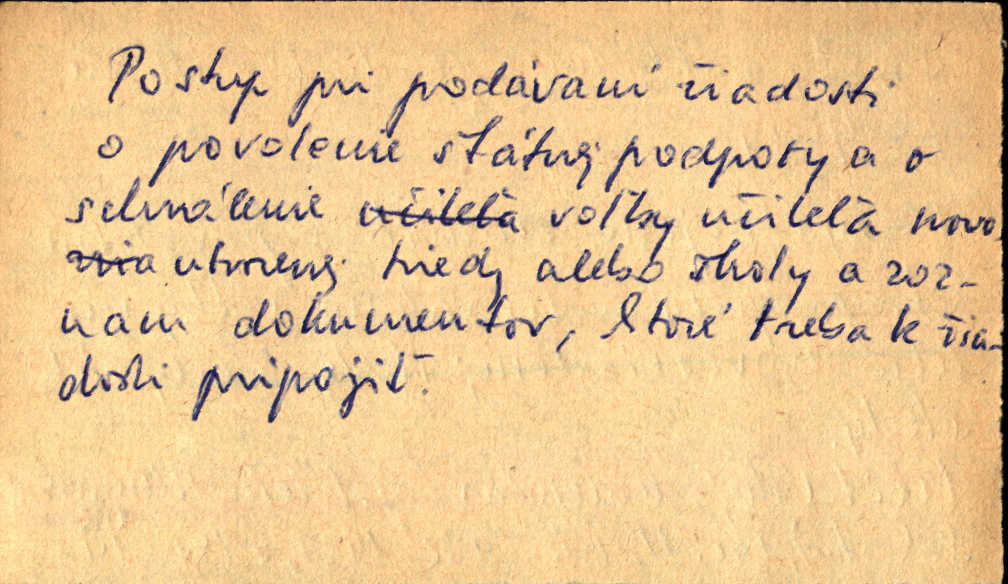 Postup pri podávaní žiadosti
o povolenie štátnej podpory a o
schválenie učiteľa voľby učiteľa novo
utvorenej triedy alebo školy a zoz-
nam dokumentov, ktoré treba k žia-
dosti pripojiť.